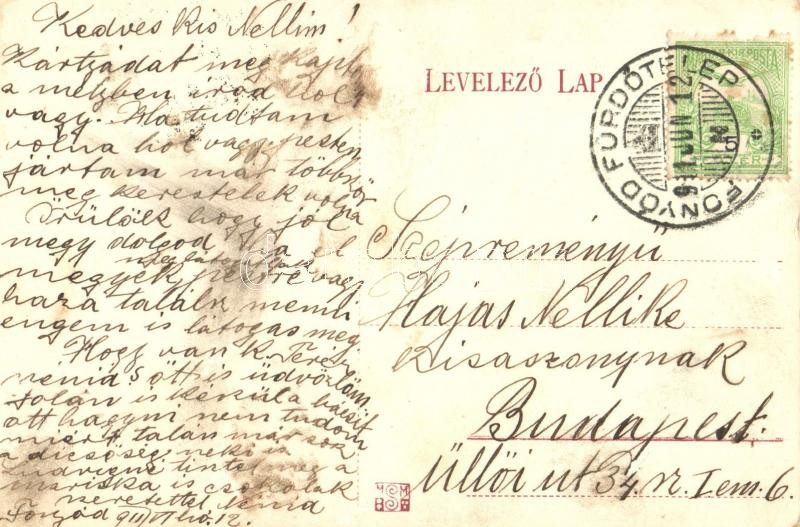 Kedves kis Nellim!
Kártyádat meg kaptam
a melyben irod hol
vagy. Ha tudtam
volna hol vagy Pesten
jártam már többször
meg kerestelek volna
Örülök hogy jól
megy dolgod, Ha el
megyek pestre vagy
haza találsz menni
engem is látogas meg.
Hogy van k. Terez
nénid s őt is üdvözlöm.
talán is
ott hagyni nem tudom
miért talán már sok
a dicsőség. neki is
meg a
mariska is csókolak
szeretettel Nina
Fonyód 911 VI hó. 12.
LEVELEZŐ LAP
FONYÓD FÜRDŐTELEP
911 JUN 12
5
KIR. POSTA
Szépreményü
Hajas Nellike
kisaszonynak
Budapest.
Üllői ut 34. sz. I em. 6.